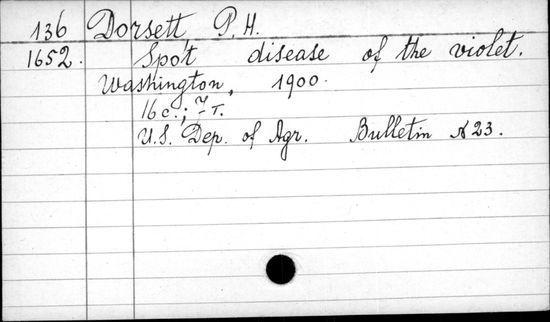 136 Dorsett P. H.
1652. Spot disease of the violet.
Washington, 1900.
16 c.; 7 т.
U.S. Dep. of Agr. Bulletin N 23.